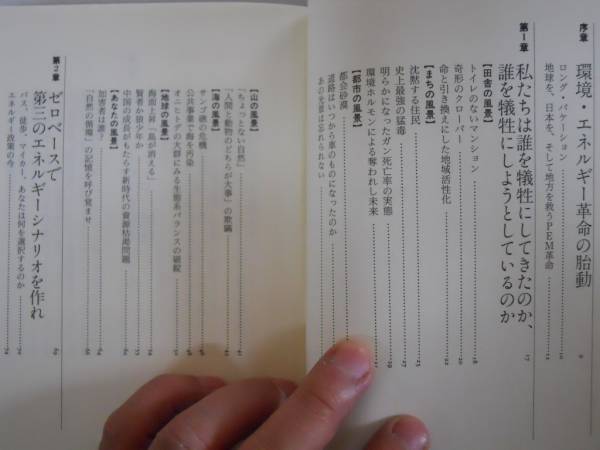 序章
環境・エネルギー革命の胎動
ロング・バケーション
地球を、日本を、そして地方を救うPEM革命
第1章
私たちは誰を犠牲にしてきたのか、
誰を犠牲にしようとしているのか
【田舎の風景】
トイレのないマンション
奇形のクローバー
命と引き換えにした地域活性化
【まちの風景】
沈黙する住民
史上最強の猛毒
明らかになったガン死亡率の実態
環境ホルモンによる奪われし未来
【都市の風景】
都会砂漠
道路はいつから車のものになったのか
あの光景は忘れられない
【山の風景】
「ちょっとない自然」
「人間と動物のどちらが大事」の欺瞞
【海の風景】
サンゴ礁の危機
公共事業で海を汚染
オニヒトデの大群にみる生態系バランスの破綻
【地球の風景】
海面上昇「島が消える」
賢治の少年か
中国の成長がもたらす新時代の資源枯渇問題
【あなたの風景】
加害者は誰?
「自然の循環」の記憶を呼び覚ませ
第2章
ゼロベースで
第三のエネルギーシナリオを作れ
バス、徒歩、マイカー、あなたは何を選択するのか
エネルギー政策の今